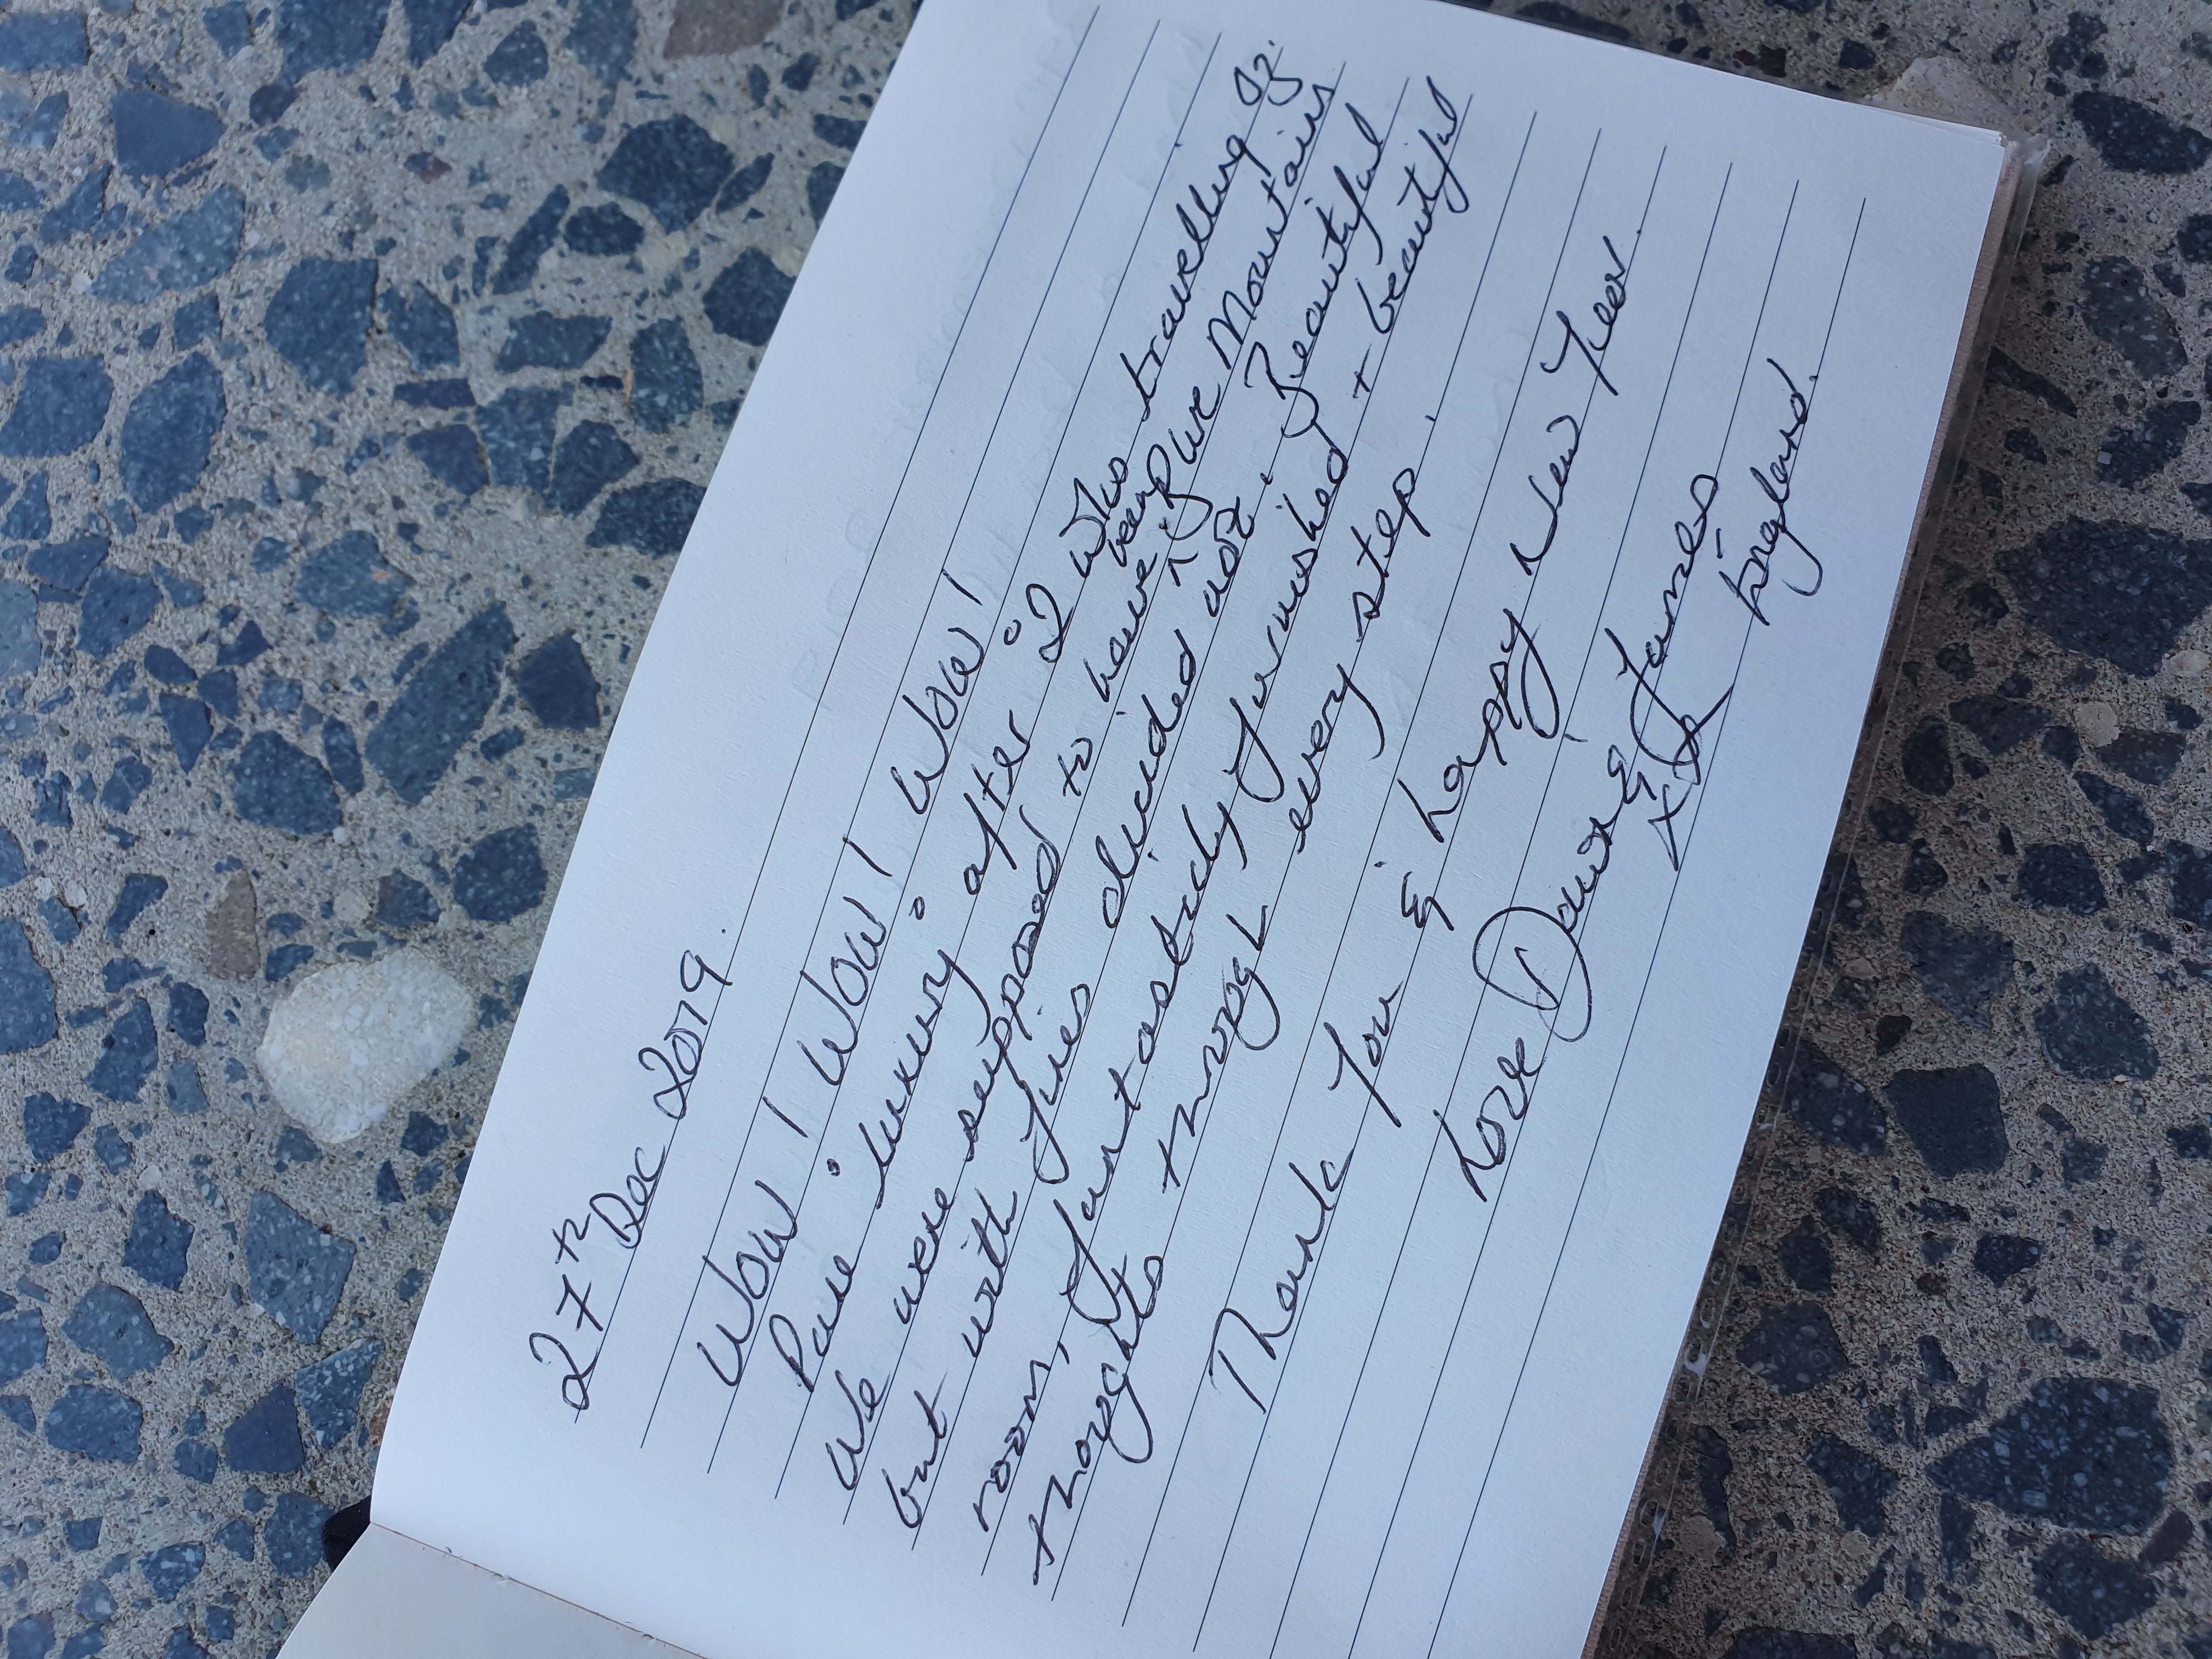 27th Dec 2019.
Wow! Wow! Wow!
Pure "luxury" after 2 wks travelling Oz.
We were supposed to have been Blue Mountains
but with fires decided not. Beautiful
room, fantasticly furnished + beautiful
thoughts through every step.
Thank You & happy New Year.
Love Dawn & James
xx England.